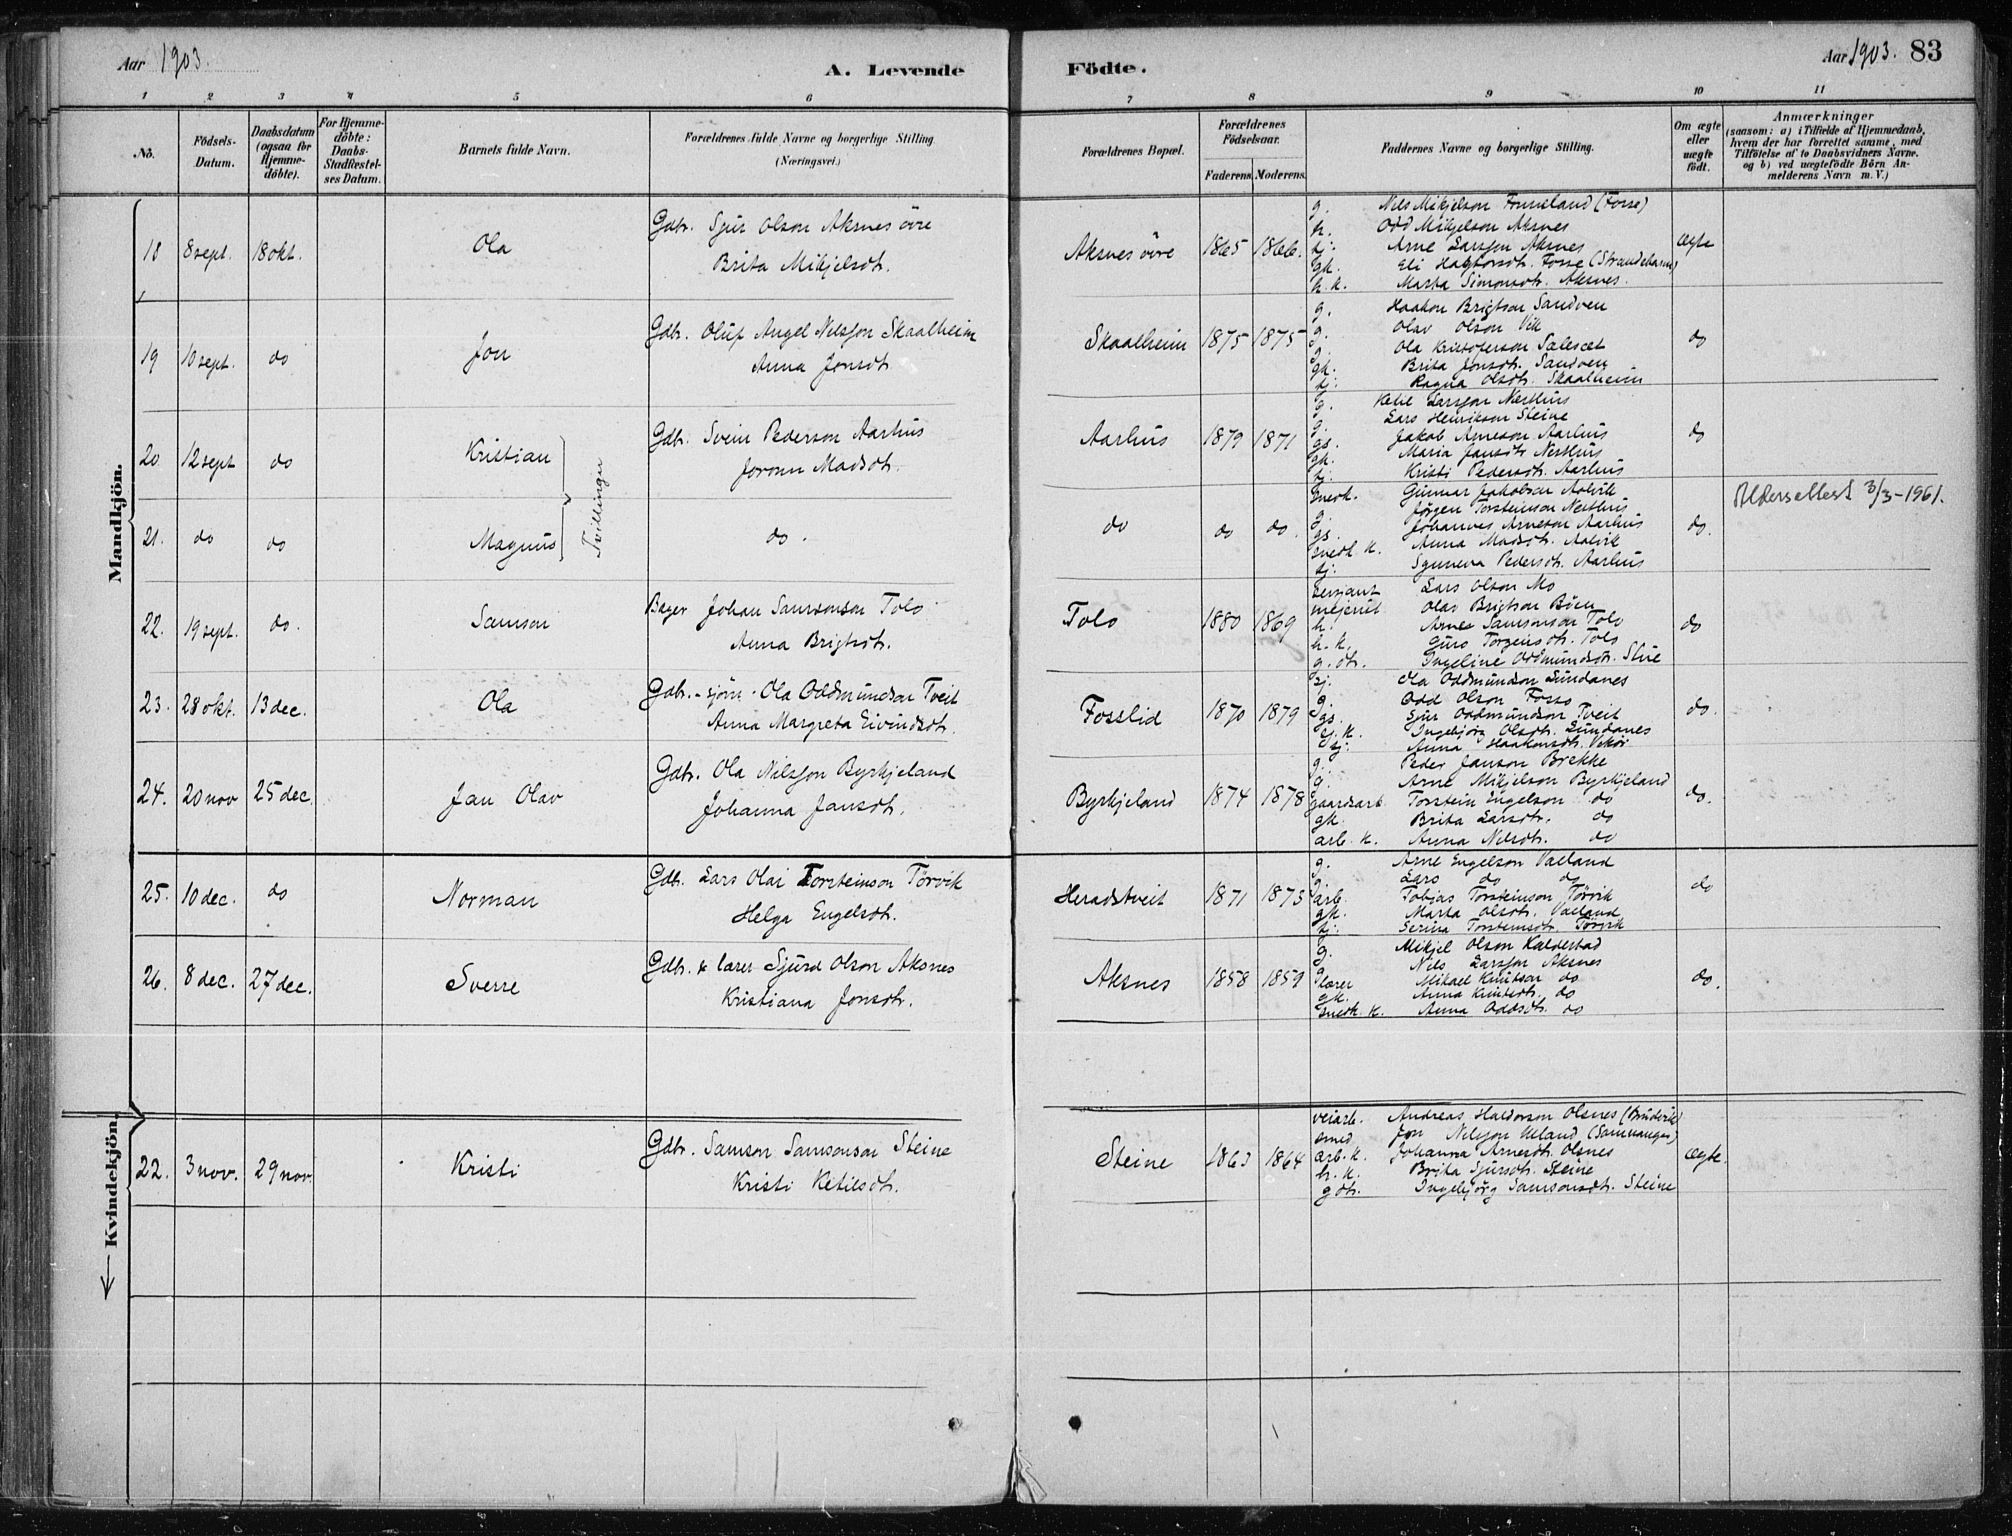 Aar 1903.
A. Levende
Födte.
Aar 1903. 83
1 2 3 4 5 6 7 8 9 10 11
No.
Födsels-Datum.
Daabsdatum (ogsaa for Hjemme-döbte).
For Hjemme-döbte: Daabs-Stadfæstel-ses Datum.
Barnets fulde Navn.
Forældrenes fulde Navne og borgerlige Stilling (Næringsvei.)
Forældrenes Bopæl.
Forældrenes Födselsaar.
Faderens Moderens.
Faddernes Navne og borgerlige Stilling.
Om ægte eller uægte födt.
Anmærkninger
(saasom: a) i Tilfælde af Hjemmedaab, hvem der har forrettet samme, med Tilföielse af to Daabsvidners Navne. og b) ved uægtefödte Börn An-melderens Navn m. V.)
Mandkjön.
18 8 sept. 18 okt. Ola
Gdbr. Sjur Olson Aksnes övre
Brita Mikjelsdt.
Aksnes övre 1865 1866. ægte
g. Nils Mikjelson Fonneland (Fosse)
h. Odd Mikjelson Aksnes
tj. Arne Larsson Aksnes
gk. Eli Fosse (Strandebarm)
h.k. Marta Simonsdt. Aksnes.
19 10 sept. do Jon
Gdbr. Oluf Angel Nilsson Skaalheim
Anna Jonsdt.
Skaalheim 1875 1875 do
g. Haakon Brigtson Sandven
g. Olav Olson Vik
g. Ola Kristoferson
gk. Brita Jonsdt. Sandven
tj. Ragna Olsdt. Skaalheim
20 12 sept do Kristian
Tvillinger
Gdbr. Svein Pederson Aarhus
Joronn Madsdt.
Aarhus 1879 1871 do
g. Ketil Larsson Nerthus
g. Lars Henrikson Steine
gs. Jakob Arneson Aarhus
gk. Maria Jansdt. Nerthus
tj. Kristi Pedersdt. Aarhus
21. do do Magnus do.
do do do. do.
snedk. Gunnar Jakobson Aalvik
g. Jörgen Torsteinson Nerthus
gs. Johannes Arneson Aarhus
snedk. k. Anna Madsdt. Aalvik
tj. Synneva Pedersdt. Aarhus
Aldersattest 3/3-1961.
22. 19 sept. do. Samson
Bager Johan Samsonson Tolo
Anna Brigtsdt.
Tolo 1880 1869 do
Lars Olson Mo
Olav Brigtson Börn
h. Arne Samsonson Tolo
h.k. Guro Torgeirsdt. Tolo
g.dt. Ingeline Oddmundsdt. Stue
23. 28 okt. 13 dec. Ola
Gdbr. - sjöm. Ola Oddmundson Tveit
Anna Margreta Eivindsdt.
Fosslid 1870 1879 do.
sj. Ola Oddmundson Sundanes
g. Odd Olson Fosso
gs. Sjur Oddmundson Tveit
sj. k. Ingebjörg Olsdt. Sundanes
tj. Anna Haakonsdt. Vikör
24. 20 nov 25 dec. Jan Olav
Gdbr. Ola Nilsson Byrkjeland
Johanna Jansdt.
Byrkjeland 1874 1878 do.
g. Peder Janson Brekke
g. Arne Mikjelson Byrkjeland
gaardsarb. Torstein Engelson do
gk. Brita Larsdt. do
arb. k. Anna Nilsdt. do
25. 10 dec. do Norman
Gdb. Lars Olai Torsteinson Törvik
Helga Engelsdt.
Heradstveit 1871 1873 do
g. Arne Engelson Valland
g. Lars do do
arb. Tobias Torsteinson Törvik
gk. Marta Olsdt. Valland
tj. Serina Torsteinsdt. Törvik
26. 8 dec. 27 dec. Sverre
Gdbr. & lærer Sjurd Olson Aksnes
Kristiana Jonsdt.
Aksnes 1858 1859 do.
g. Mikjel Olson Kaldestad
g. Nils Larsson Aksnes
lærer Mikael Knutson do
gk. Anna Knutsdt. do
snedk. k. Anna Oddsdt. do
Kvindekjön.
22. 3 nov. 29 nov. Kristi
Gdbr. Samson Samsonson Steine
Kristi Ketilsdt.
Steine 1863 1864 ægte.
veiarb. Andreas Haldorson Olsnes
smed Jon Nilsson (Samnanger)
arb. k. Johanna Arnesdt. Olsnes
h. k. Brita Sjursdt. Steine
g dt. Ingebjörg Samsonsdt. Steine